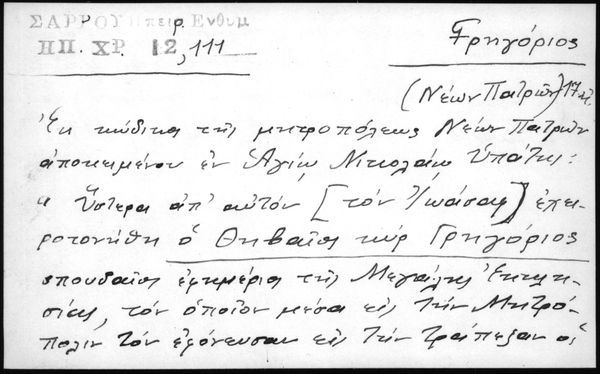 ΣΑΡΡΟΥ Ηπειρ. Ενθυμ
ΗΠ. ΧΡ 12, 111
Γρηγόριος
(Νέων Πατρῶν) 17 αἰ.
Ἐκ κώδικα τῆς μητροπόλεως Νέων Πατρῶν
ἀποκειμένου ἐν Ἁγίῳ Νικολάῳ Ὑπάτης:
« Ὕστερα ἀπ' αὐτόν [τόν Ἰωάσαφ] ἐχει-
ροτονήθη ὁ Θηβαῖος κύρ Γρηγόριος
σπουδαῖος ἐφημέριος τῆς Μεγάλης Ἐκκλη-
σίας, τόν ὁποῖον μέσα εἰς τήν Μητρό-
πολιν τόν ἐφόνευσαν εἰς τήν τράπεζαν οἱ